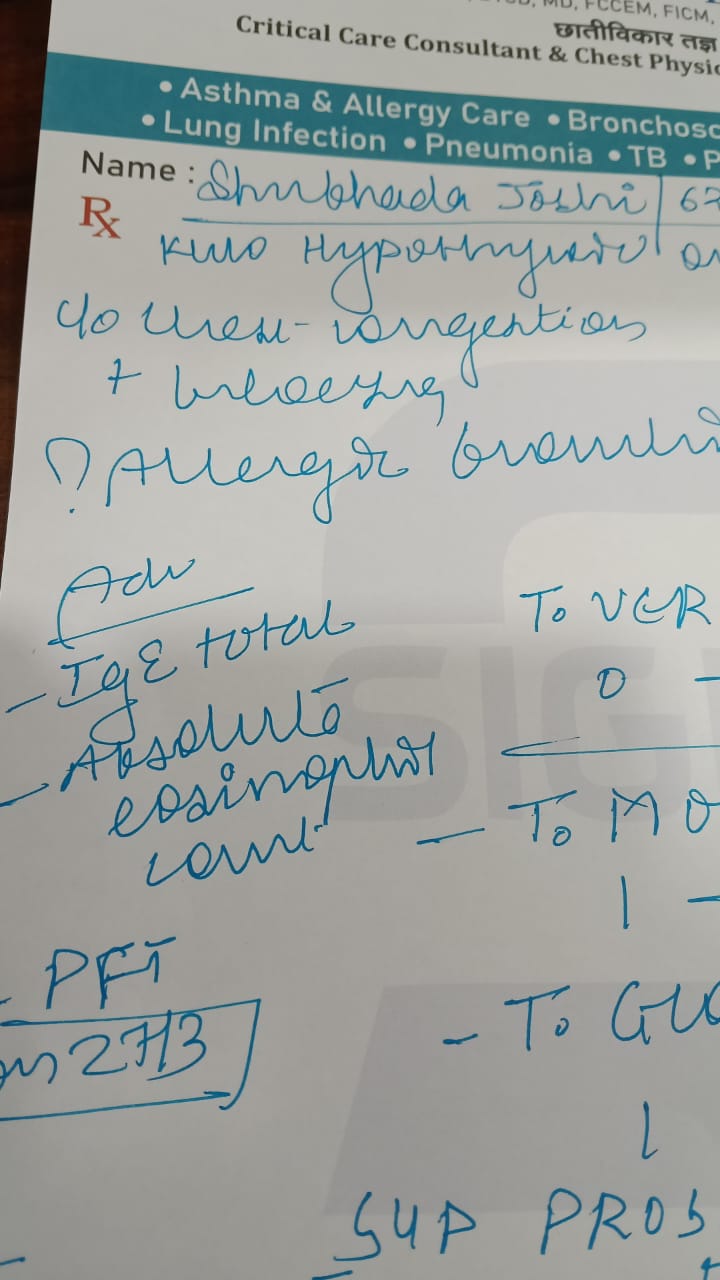 MD, FCCEM, FICM,
छातीविकार तज्ञ
Critical Care Consultant & Chest Physic
• Asthma & Allergy Care • Bronchosc
• Lung Infection • Pneumonia • TB • P
Name : Shubhada Joshi 67
Rx
Hypothyroid on
congestion
+
? Allergic
Adv
- IgE total
- Absolute
eosinophil
count
- PFT
on 27/3
To VER
0 -
- To MO
1 -
- To GLU
1
SYP PROS
SIG